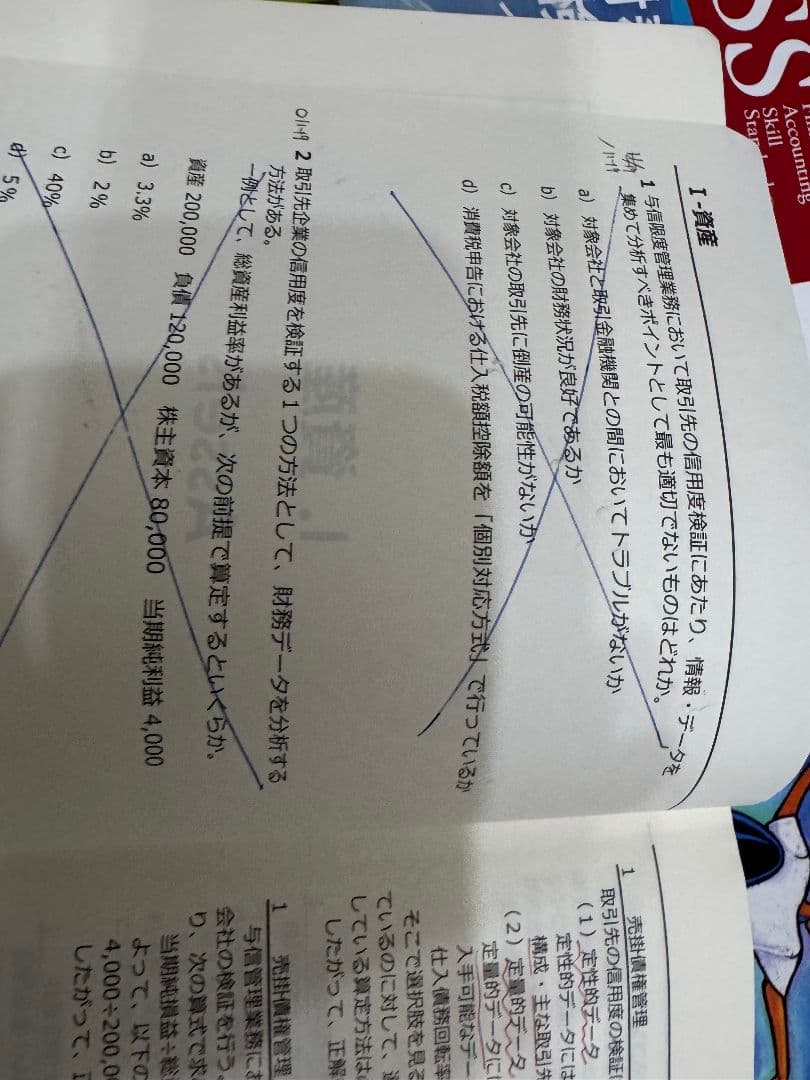 SS
Accounting
Skill
I-資産
1 与信限度管理業務において取引先の信用度検証にあたり、情報・データを
集めて分析すべきポイントとして最も適切でないものはどれか。
a) 対象会社と取引金融機関との間においてトラブルがないか
b) 対象会社の財務状況が良好であるか
c) 対象会社の取引先に倒産の可能性がないか
d) 消費税申告における仕入税額控除額を「個別対応方式」で行っているか
2 取引先企業の信用度を検証する1つの方法として、財務データを分析する
方法がある。
一例として、総資産利益率があるが、次の前提で算定するといくらか。
資産 200,000 負債 120,000 株主資本 80,000 当期純利益 4,000
a) 3.3%
b) 2%
c) 40%
d) 5%
1 売掛債権管理
取引先の信用度の検証
(1) 定性的データ
定性的データには
構成・主な取引先
(2) 定量的データ
定量的データに
入手可能なデー
仕入債務回転率
そこで選択肢を見る
ているのに対して、
している算定方法は
したがって、正解
1 売掛債権管理
与信管理業務にお
会社の検証を行う。
り、次の算式で求
当期純損益÷総
よって、以下の
4,000÷200,0
したがって、